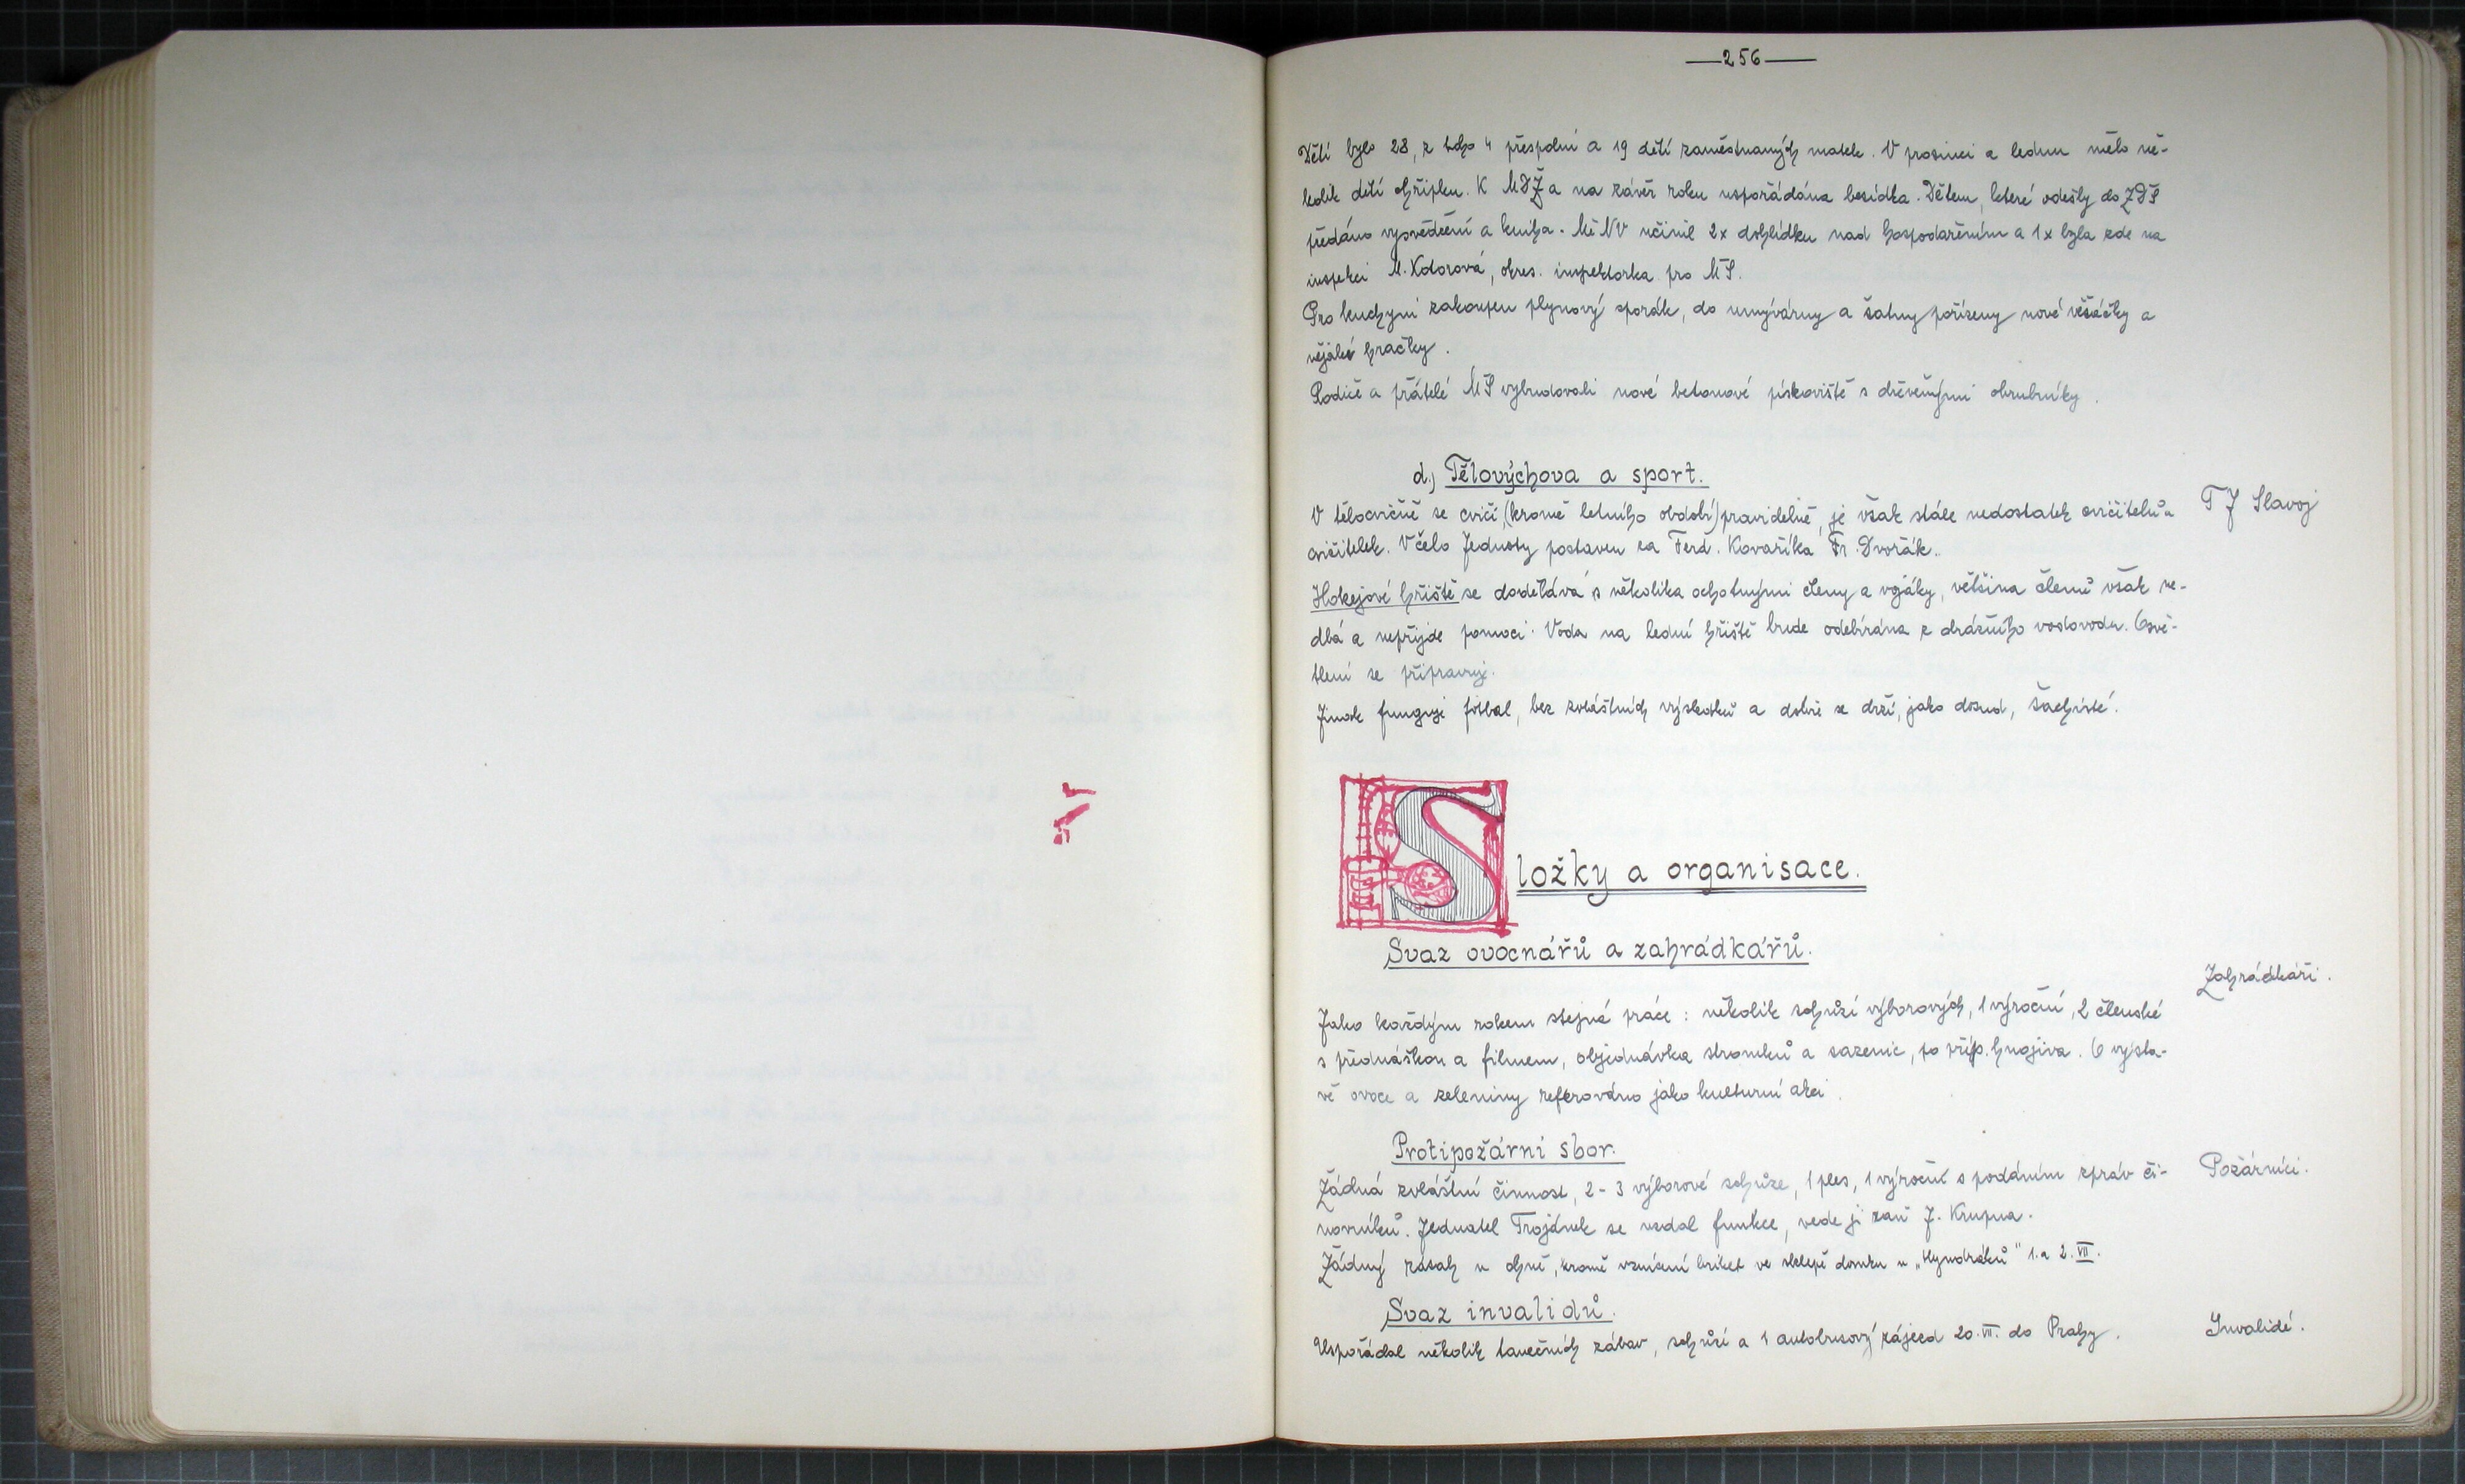 —256—
Dětí bylo 28, z toho 4 přespolní a 19 dětí zaměstnaných matek. V prosinci a lednu mělo ně-
kolik dětí chřipku. K MDŽ a na závěr roku uspořádána besídka. Dětem, které odešly do ZDŠ
předáno vysvědčení a kniha. MěNV učinil 2x dohlídku nad hospodařením a 1x byla zde na
inspekci M. Kdorová, okres. inspektorka pro MŠ.
Pro kuchyni zakoupen plynový sporák, do umývárny a šatny pořízeny nové věšáčky a
nějaké hračky.
Rodiče a přátelé MŠ vybudovali nové betonové pískoviště s dřevěnými obrubníky.
d.) Tělovýchova a sport.
V tělocvičně se cvičí, (kromě letního období) pravidelně, je však stále nedostatek cvičitelů a
cvičitelek. V čelo Jednoty postaven za Ferd. Kovaříka Fr. Dvořák.
TJ Slavoj
Hokejové hřiště se dodělává s několika ochotnými členy a vojáky, většina členů však ne-
dbá a nepřijde pomoci. Voda na lední hřiště bude odebírána z drážního vodovodu. Osvě-
tlení se připravuje.
Jinak funguje fotbal, bez zvláštních výsledků a dobře se drží, jako dosud, šachisté.
Složky a organisace.
Svaz ovocnářů a zahrádkářů.
Zahrádkáři.
Jako každým rokem stejná práce: několik schůzí výborových, 1 výroční, 2 členské
s přednáškou a filmem, objednávka stromků a sazenic, po příp. hnojiva. O výsta-
vě ovoce a zeleniny referováno jako kulturní akci.
Protipožární sbor.
Žádná zvláštní činnost, 2-3 výborové schůze, 1 ples, 1 výroční s podáním zpráv či-
novníků. Jednatel Trojánek se vzdal funkce, vede ji zaň J. Krupna.
Požárníci.
Žádný zásah u ohně, kromě vznícení briket ve sklepě domku u „Hyndráků" 1. a 2. VII.
Svaz invalidů.
Uspořádal několik tanečních zábav, schůzí a 1 autobusový zájezd 20. VII. do Prahy.
Invalidé.